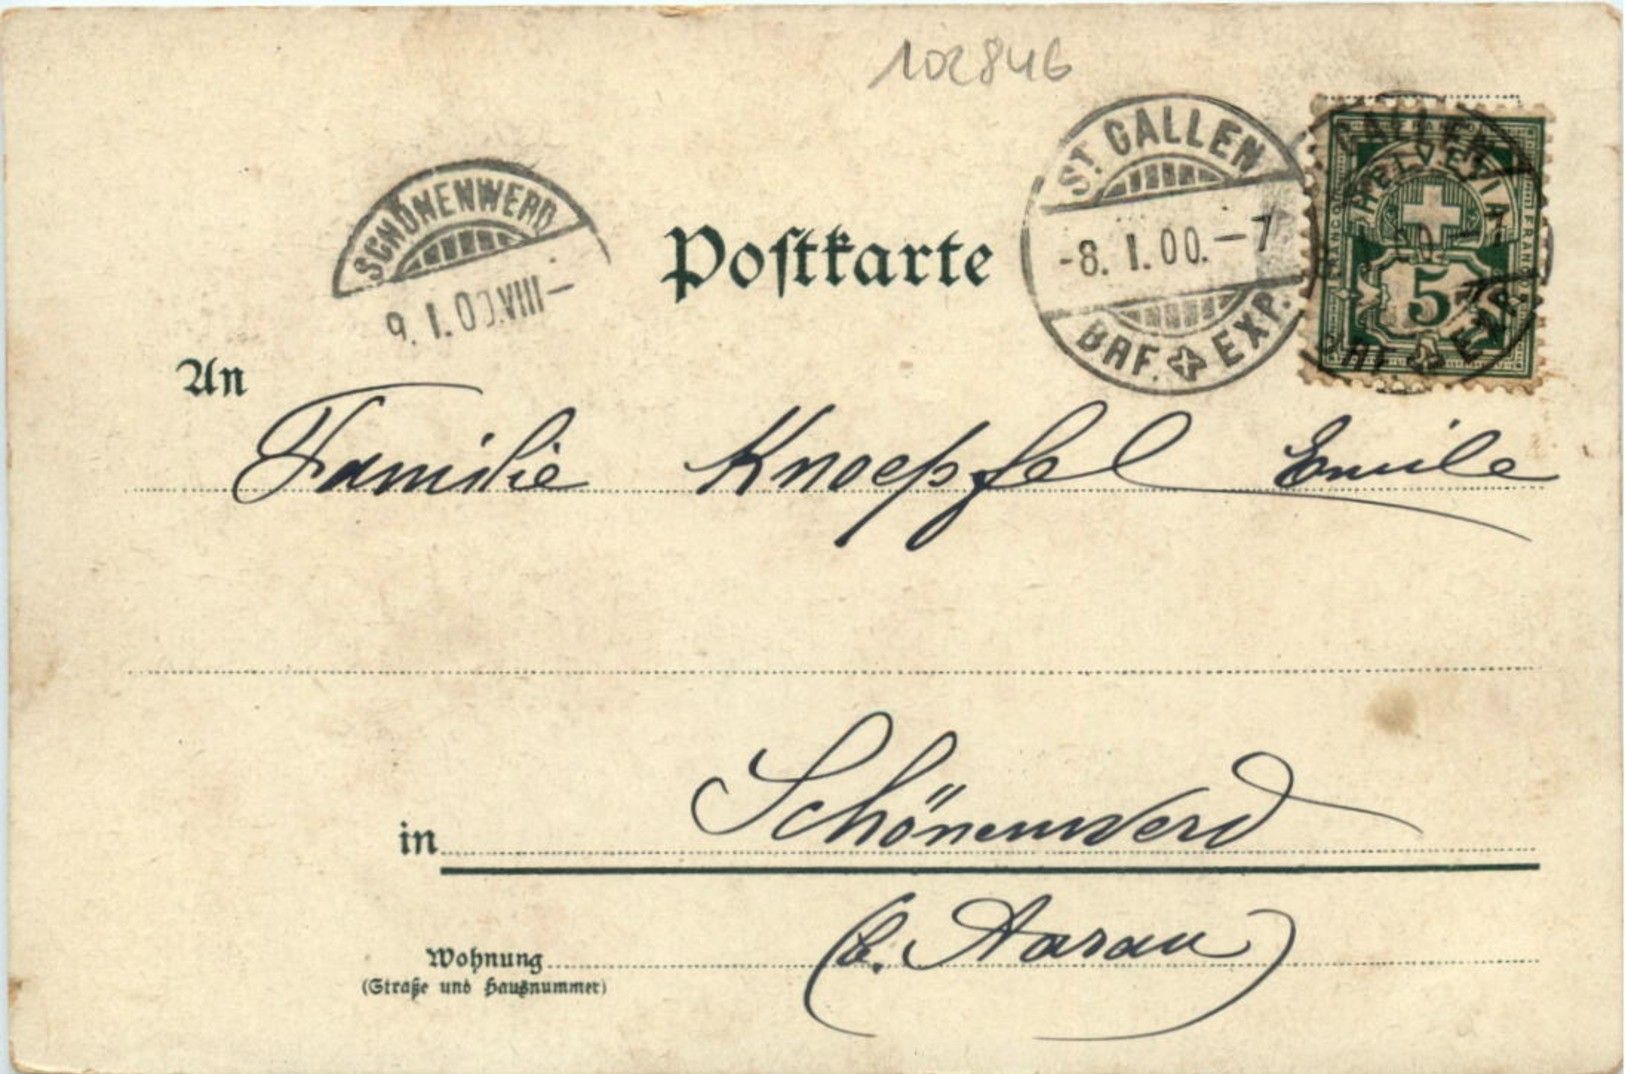 102846
ST. GALLEN
-8. I. 00. - 7
BRF. EXP.
HELVETIA
FRANCO
5
SCHÖNENWERD
9. I. 00. VIII -
Postkarte
An
Familie Knoepfel Emile
in Schönenwerd
(b. Aarau)
Wohnung
(Straße und Hausnummer)